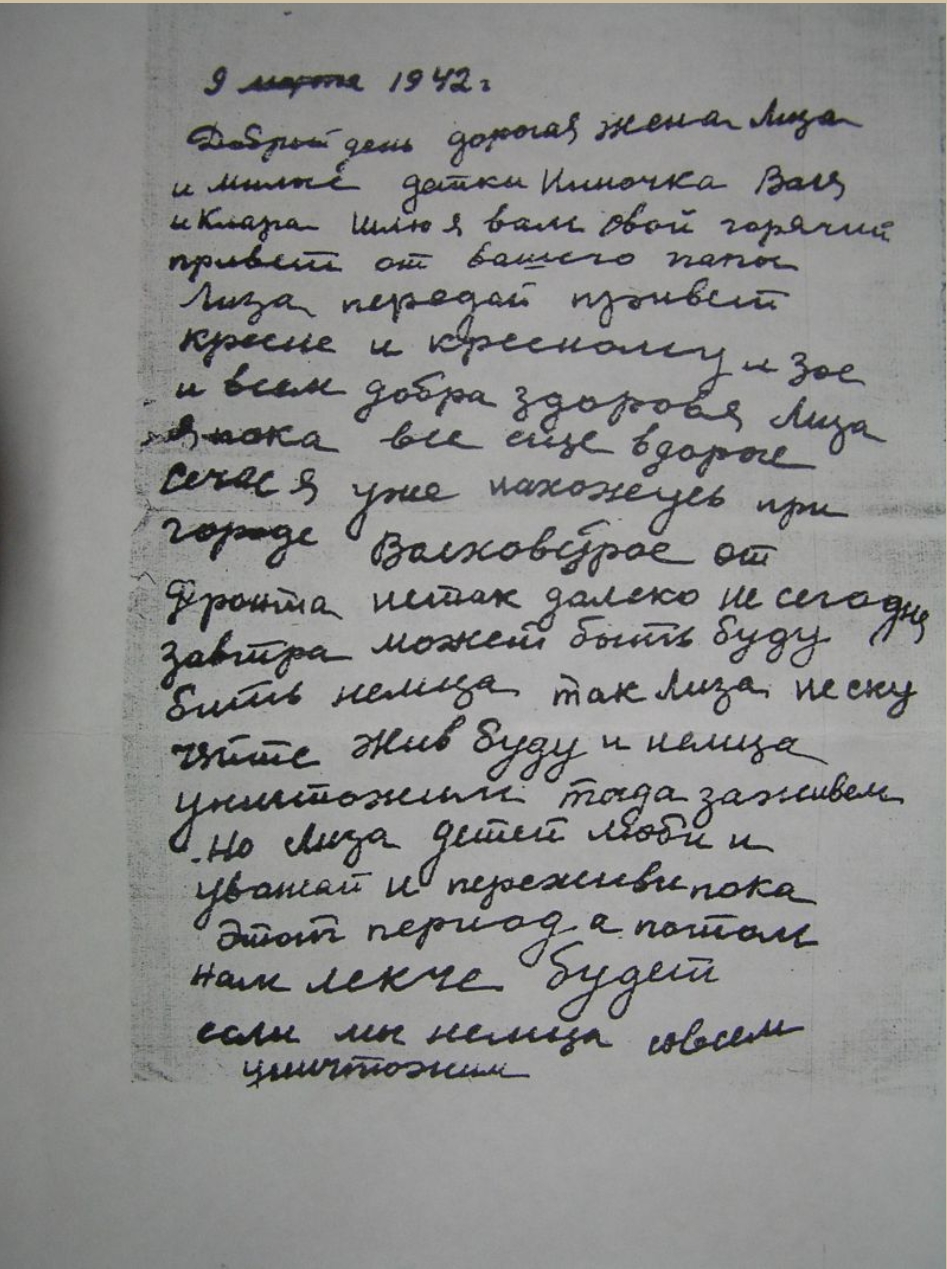 9 марта 1942г
Добрый день дорогая жена Лиза
и милые детки Ниночка Валя
и Клара шлю я вам свой горячий
привет от вашего папы
Лиза передай привет
кресне и кресному и Зое
и всем добра здоровья Лиза
я пока все еще вдороге
сечас я уже нахожусь при
городе Волховстрое от
фронта нетак далеко не сегодня
завтра может быть буду
бить немца так Лиза не ску
чяйте жив буду и немца
уничтожим тогда заживем
. Но Лиза детей люби и
уважай и переживи пока
этот период а потом
нам лекче будет
если мы немца совсем
уничтожим